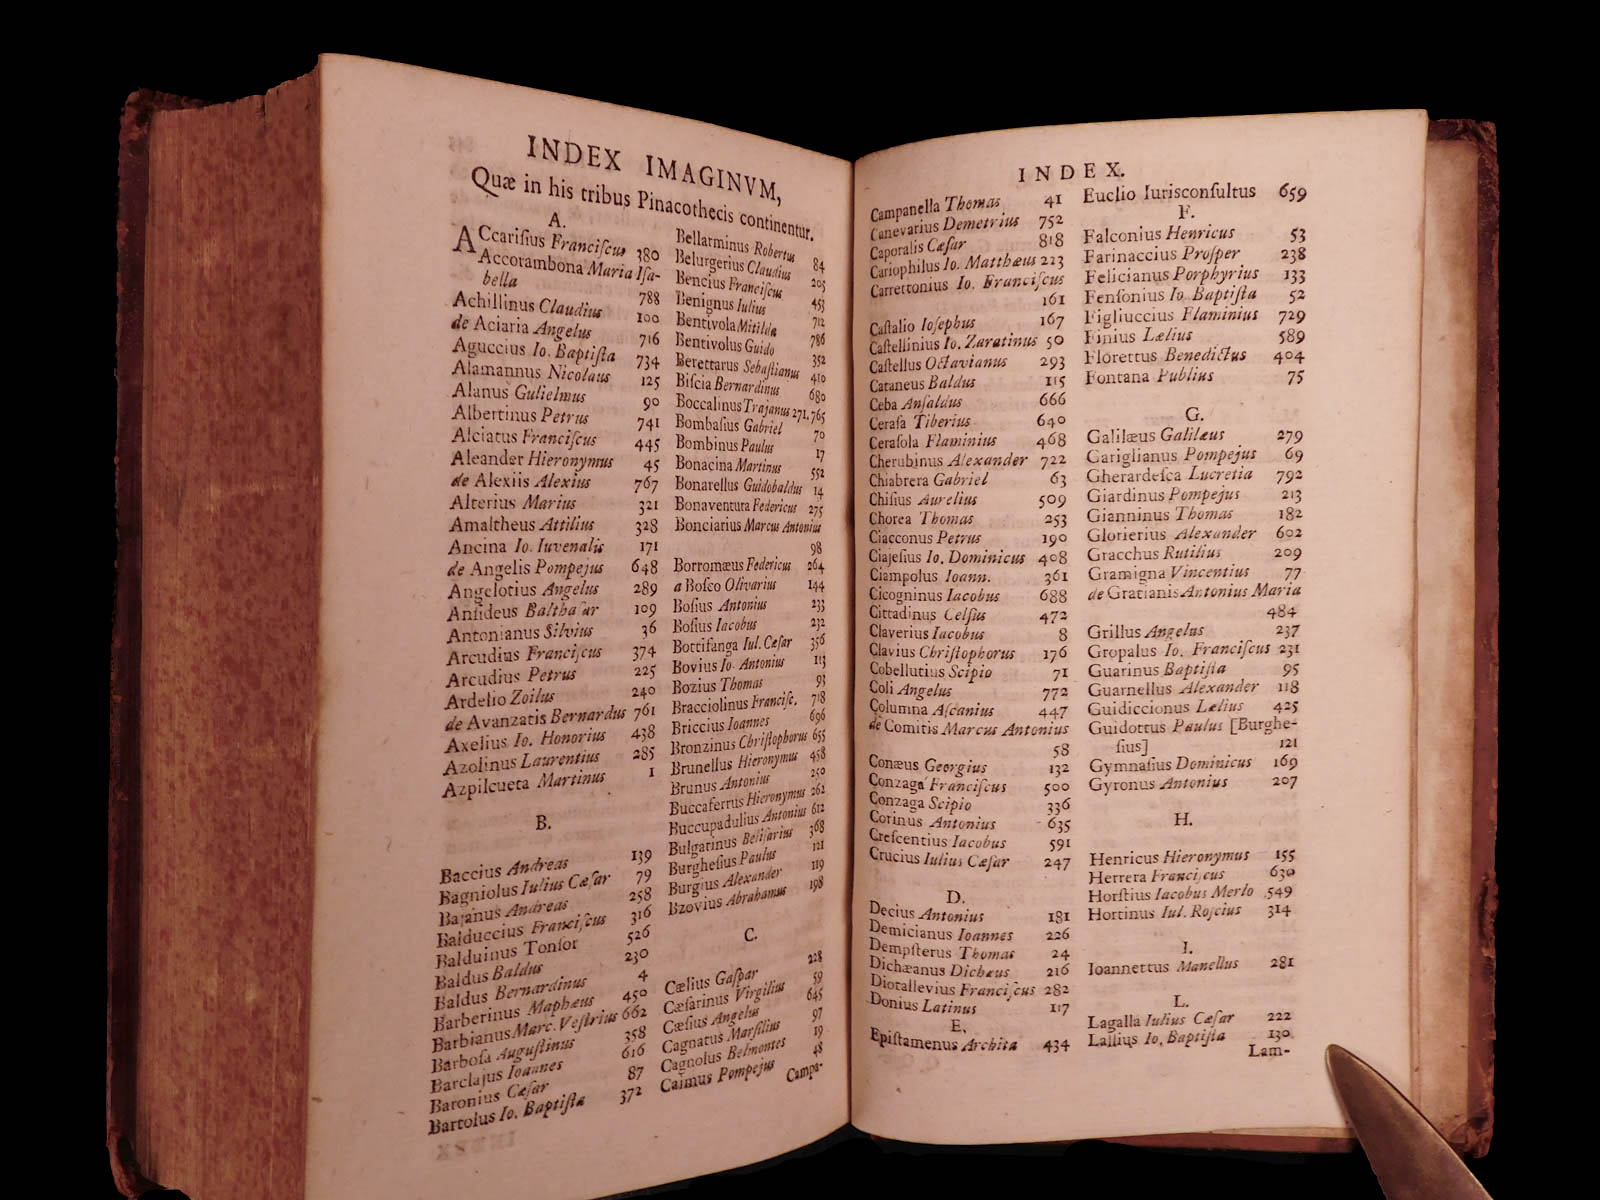 INDEX IMAGINVM,
Quæ in his tribus Pinacothecis continentur.
A.
ACcariſius Franciſcus 380
Accorambona Maria Iſa-
bella 788
Achillinus Claudius 100
de Aciaria Angelus 716
Aguccius Io. Baptiſta 734
Alamannus Nicolaus 125
Alanus Gulielmus 90
Albertinus Petrus 741
Alciatus Franciſcus 445
Aleander Hieronymus 45
de Alexiis Alexius 767
Alterius Marius 321
Amaltheus Attilius 328
Ancina Io. Iuvenalis 171
de Angelis Pompejus 648
Angelotius Angelus 289
Anſideus Balthaſar 109
Antonianus Silvius 36
Arcudius Franciſcus 374
Arcudius Petrus 225
Ardelio Zoilus 240
de Avanzatis Bernardus 761
Axelius Io. Honorius 438
Azolinus Laurentius 285
Azpilcueta Martinus 1
B.
Baccius Andreas 139
Bagniolus Iulius Cæſar 79
Bajanus Andreas 258
Balduccius Franciſcus 316
Balduinus Tonſor 526
Baldus Baldus 230
Baldus Bernardinus 4
Barberinus Maphæus 450
Barbianus Marc. Veſtrius 662
Barboſa Auguſtinus 358
Barclajus Ioannes 616
Baronius Cæſar 87
Bartolus Io. Baptiſta 372
Bellarminus Robertus 84
Belurgerius Claudius 205
Bencius Franciſcus 453
Benignus Iulius 712
Bentivola Mitilda 786
Bentivolus Guido 352
Berettarus Sebaſtianus 410
Biſcia Bernardinus 680
Boccalinus Trajanus 271, 765
Bombaſius Gabriel 70
Bombinus Paulus 17
Bonacina Martinus 552
Bonarellus Guidobaldus 14
Bonaventura Federicus 275
Bonciarius Marcus Antonius
98
Borromæus Federicus 264
a Boſco Olivarius 144
Boſius Antonius 233
Boſius Iacobus 232
Bottifanga Iul. Cæſar 356
Bovius Io. Antonius 113
Bozius Thomas 93
Bracciolinus Franciſc. 718
Briccius Ioannes 696
Bronzinus Chriſtophorus 655
Brunellus Hieronymus 458
Brunus Antonius 250
Buccaferrus Hieronymus 262
Buccupadulius Antonius 612
Bulgarinus Beliſarius 368
Burgheſius Paulus 121
Burgius Alexander 119
Bzovius Abrahamus 198
C.
Cælius Gaſpar 228
Cæſarinus Virgilius 59
Cæſius Angelus 645
Cagnatus Marſilius 97
Cagnolus Belmontes 19
Caimus Pompejus 48
Campa-
INDEX.
Campanella Thomas 41
Canevarius Demetrius 752
Caporalis Cæſar 818
Cariophilus Io. Matthæus 223
Carrettonius Io. Franciſcus
161
Caſtalio Ioſephus 167
Caſtellinius Io. Zaratinus 50
Caſtellus Octavianus 293
Cataneus Baldus 115
Ceba Anſaldus 666
Ceraſa Tiberius 640
Ceraſola Flaminius 468
Cherubinus Alexander 722
Chiabrera Gabriel 63
Chiſius Aurelius 509
Chorea Thomas 253
Ciacconus Petrus 190
Ciajeſius Io. Dominicus 408
Ciampolus Ioann. 361
Cicogninus Iacobus 688
Cittadinus Celſus 472
Claverius Iacobus 8
Clavius Chriſtophorus 176
Cobellutius Scipio 71
Coli Angelus 772
Columna Aſcanius 447
de Comitis Marcus Antonius
58
Conæus Georgius 132
Conzaga Franciſcus 500
Conzaga Scipio 336
Corinus Antonius 635
Creſcentius Iacobus 591
Crucius Iulius Cæſar 247
D.
Decius Antonius 181
Demicianus Ioannes 226
Dempſterus Thomas 24
Dichæanus Dichæus 216
Diotallevius Franciſcus 282
Donius Latinus 117
E.
Epiſtamenus Archita 434
Euclio Iurisconſultus 659
F.
Falconius Henricus 53
Farinaccius Proſper 238
Felicianus Porphyrius 133
Fenſonius Io Baptiſta 52
Figliuccius Flaminius 729
Finius Lælius 589
Florettus Benedictus 404
Fontana Publius 75
G.
Galilæus Galilæus 279
Gariglianus Pompejus 69
Gherardeſca Lucretia 792
Giardinus Pompejus 213
Gianninus Thomas 182
Glorierius Alexander 602
Gracchus Rutilius 209
Gramigna Vincentius 77
de Gratianis Antonius Maria
484
Grillus Angelus 237
Gropalus Io. Franciſcus 231
Guarinus Baptiſta 95
Guarnellus Alexander 118
Guidiccionus Lælius 425
Guidottus Paulus [Burghe-
ſius] 121
Gymnaſius Dominicus 169
Gyronus Antonius 207
H.
Henricus Hieronymus 155
Herrera Franciſcus 630
Horſtius Iacobus Merlo 549
Hortinus Iul. Roſcius 314
I.
Ioannettus Manellus 281
L.
Lagalla Iulius Cæſar 222
Lallius Io. Baptiſta 130
Lam-